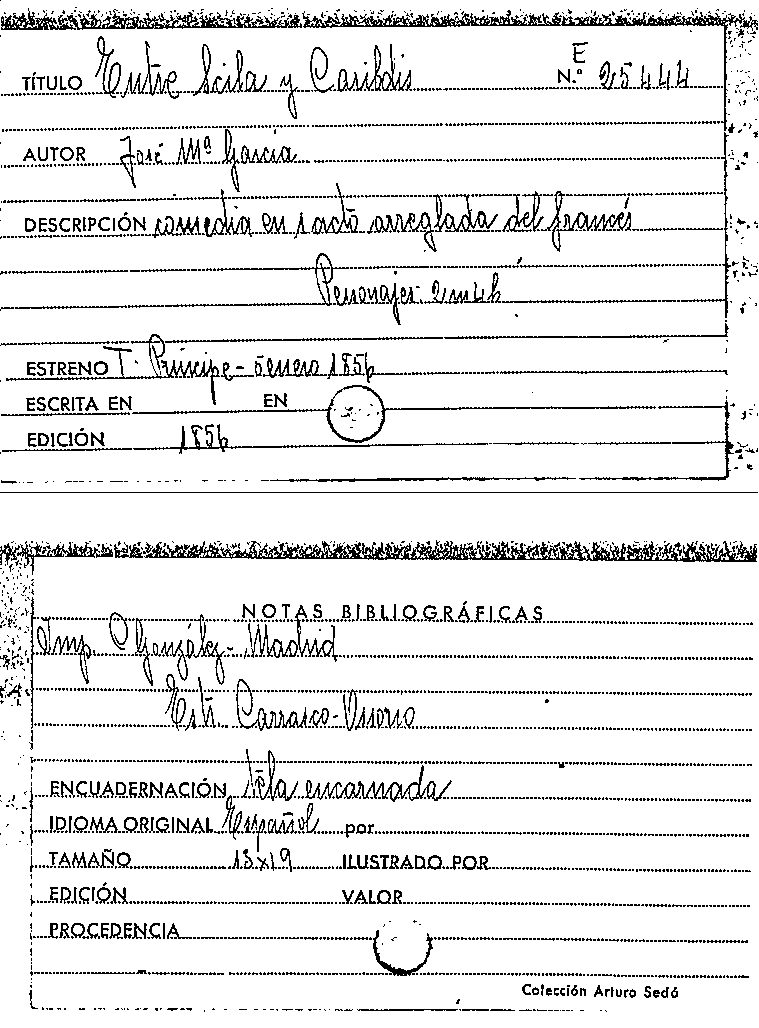 TÍTULO Entre Scila y Caribdis E N.º 25444
AUTOR José Mª García
DESCRIPCIÓN comedia en 1 acto arreglada del francés
Personajes: 2m4h
ESTRENO T. Príncipe - enero 1856
ESCRITA EN EN
EDICIÓN 1856
NOTAS BIBLIOGRÁFICAS
Imp. C González - Madrid
Estr. Carrasco - Osorio
ENCUADERNACIÓN tela encarnada
IDIOMA ORIGINAL Español por
TAMAÑO 13x19 ILUSTRADO POR
EDICIÓN VALOR
PROCEDENCIA
Colección Arturo Sedó